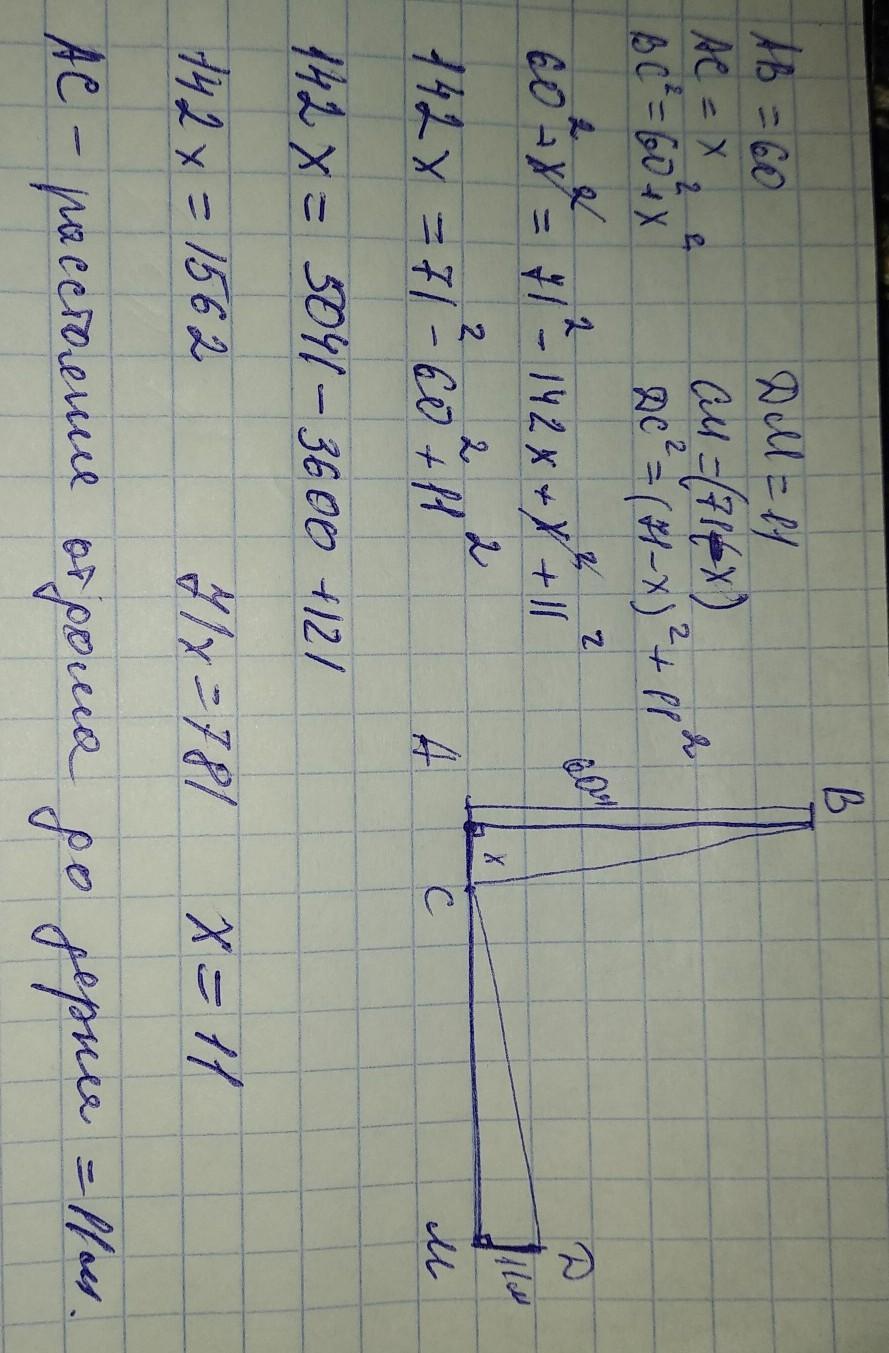 AB = 60
AC = x
BC² = 60² + x²
DM = 11
CM = (71 - x)
DC² = (71 - x)² + 11²
60² + x² = 71² - 142x + x² + 11²
142x = 71² - 60² + 11²
142x = 5041 - 3600 + 121
142x = 1562
71x = 781
x = 11
AC - расстояние от дома до
= 11м.
B
60м
A
x
C
M
11м
D